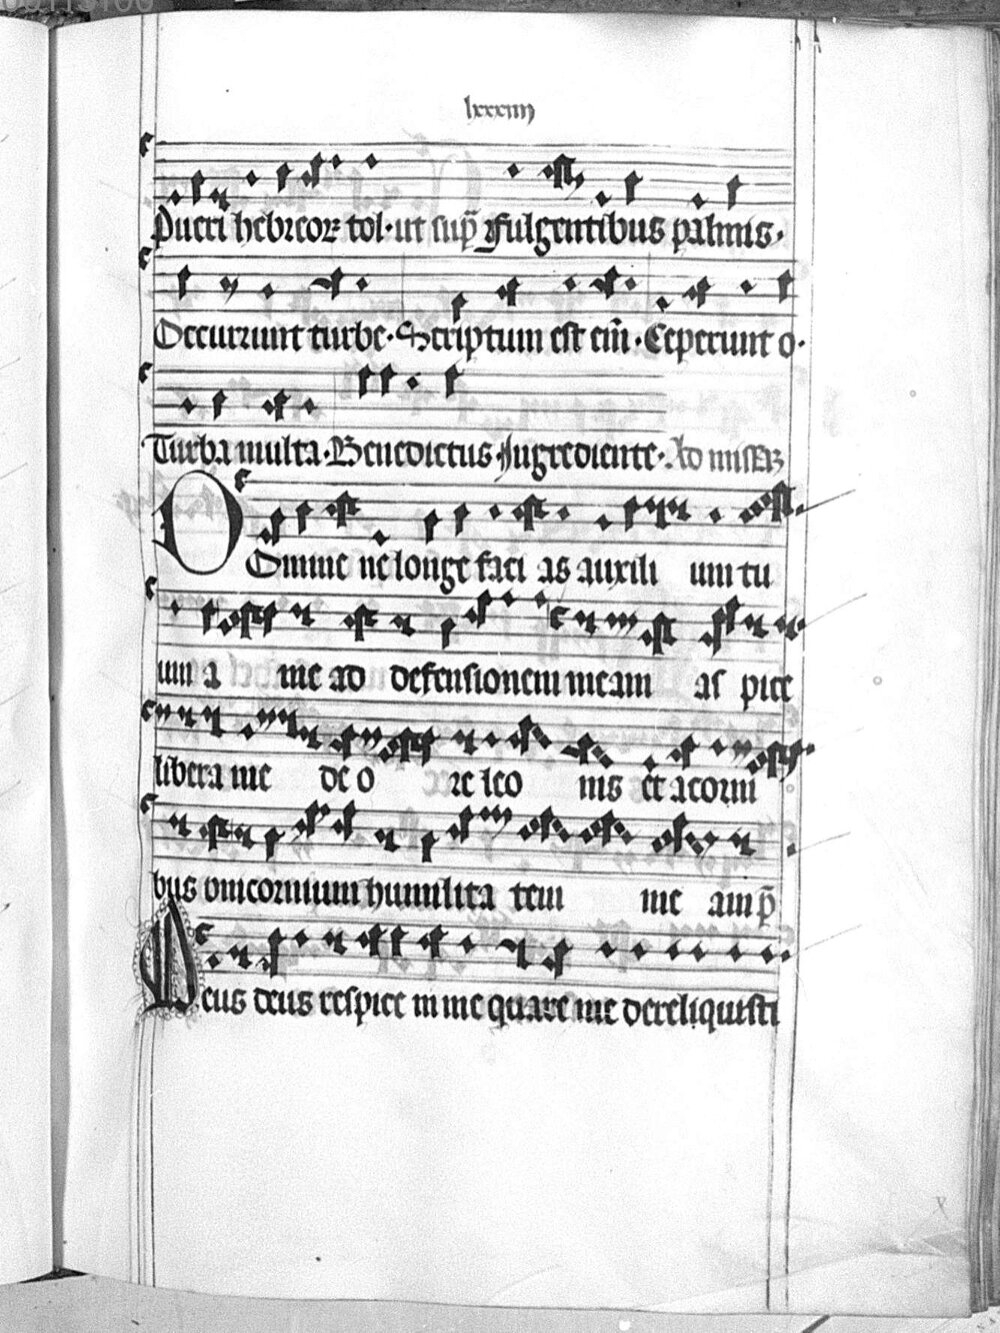 lxxxiiij
Pueri hebreoꝝ tol· ut sup̄ Fulgentibus palmis·
Occurrunt turbe· Scriptum est eni̅· Ceperunt o·
Turba multa· Benedictus· Ingrediente· Ad missā
Domine ne longe faci as auxili um tu
um a me ad defensionem meam as pice
libera me de o re leo nis et a corni
bus unicornium humilita tem me am p̄
Deus deus respice in me quare me dereliquisti